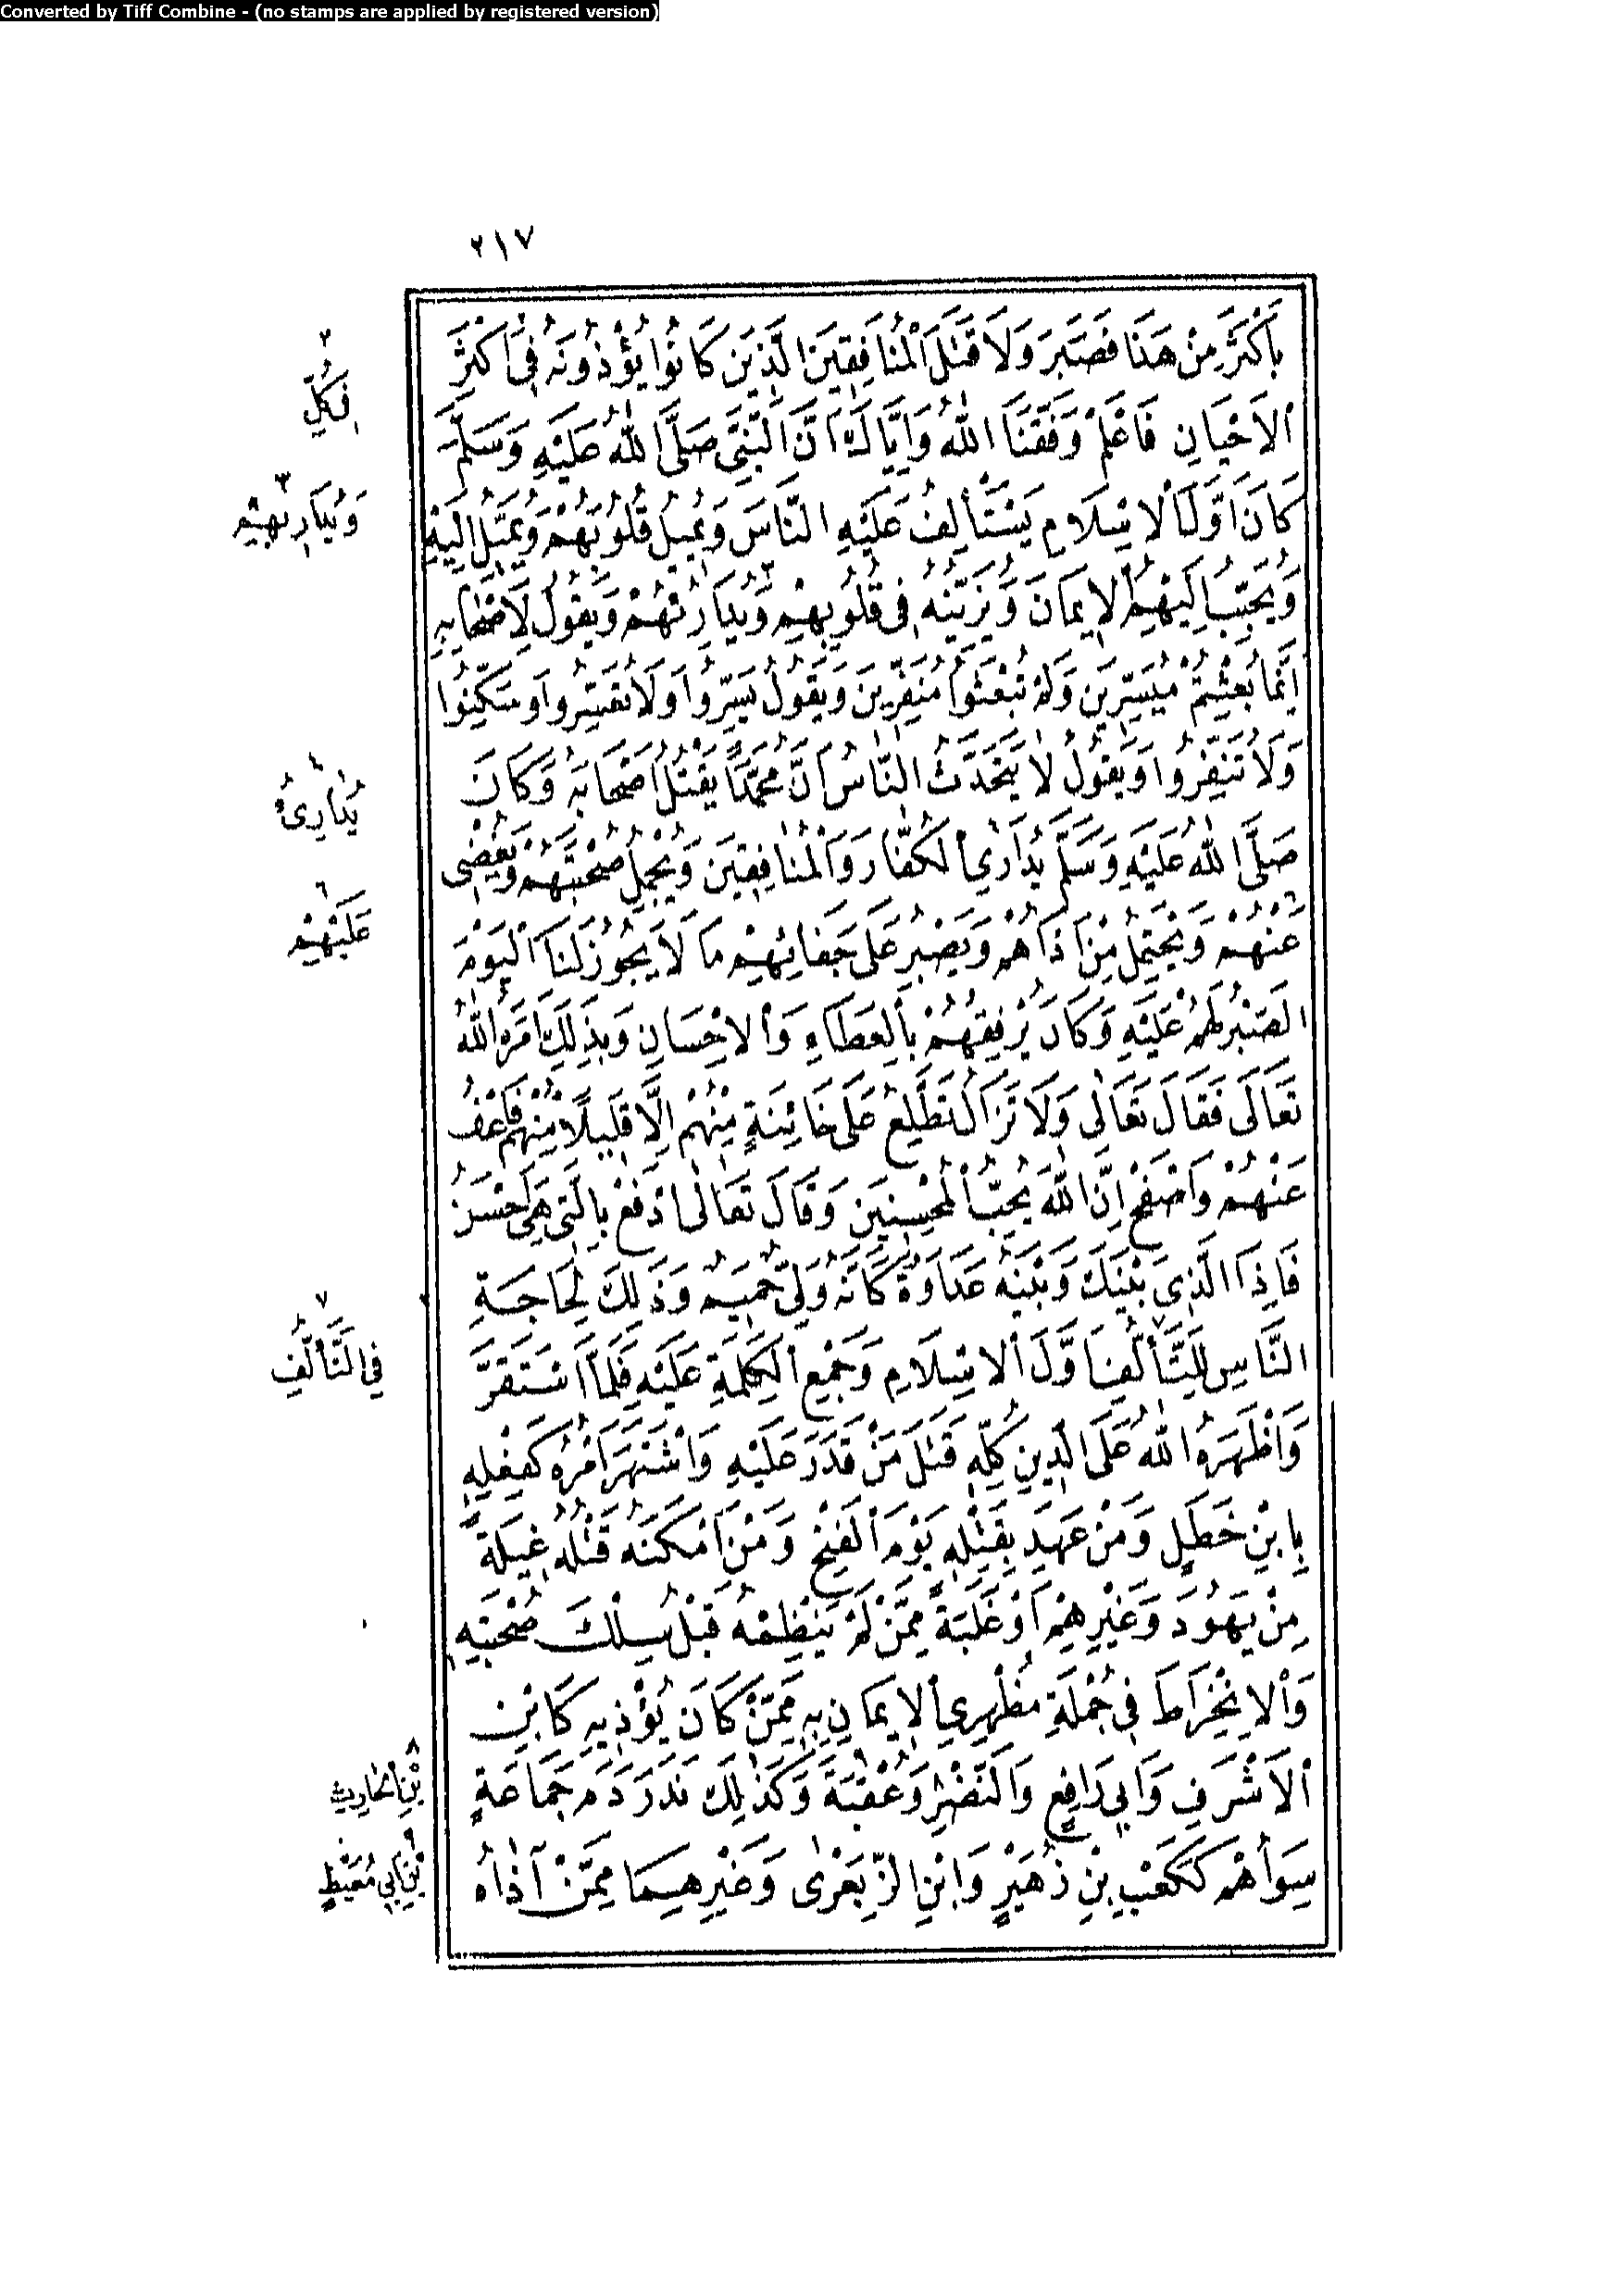 Converted by Tiff Combine - (no stamps are applied by registered version)
٢١٧
بِأَكْثَرَ مِنْ هَذَا فَصَبَرَ وَلَا قَتَلَ الْمُنَافِقِينَ الَّذِينَ كَانُوا يُؤْذُونَهُ فِي أَكْثَرِ
الْأَحْيَانِ فَاعْلَمْ وَفَّقَنَا اللهُ وَإِيَّاكَ أَنَّ النَّبِيَّ صَلَّى اللهُ عَلَيْهِ وَسَلَّمَ
كَانَ أَوَّلَ الْإِسْلَامِ يَسْتَأْلِفُ عَلَيْهِ النَّاسَ وَيُمِيلُ قُلُوبَهُمْ وَيُمَيِّلُ إِلَيْهِ
وَيُحَبِّبُ إِلَيْهِمُ الْإِيمَانَ وَيُزَيِّنُهُ فِي قُلُوبِهِمْ ٣ وَيُدَارِئُهُمْ وَيَقُولُ لِأَصْحَابِهِ
إِنَّمَا بُعِثْتُمْ مُيَسِّرِينَ وَلَمْ تُبْعَثُوا مُنَفِّرِينَ وَيَقُولُ يَسِّرُوا وَلَا تُعَسِّرُوا وَسَكِّنُوا
وَلَا تُنَفِّرُوا وَيَقُولُ لَا يَتَحَدَّثُ النَّاسُ أَنَّ مُحَمَّدًا يَقْتُلُ أَصْحَابَهُ وَكَانَ
صَلَّى اللهُ عَلَيْهِ وَسَلَّمَ يُدَارِي الْكُفَّارَ وَالْمُنَافِقِينَ وَيُجْمِلُ صُحْبَتَهُمْ وَيُغْضِي
عَنْهُمْ وَيَحْتَمِلُ مِنْ أَذَاهُمْ وَيَصْبِرُ عَلَى جَفَائِهِمْ مَا لَا يَجُوزُ لَنَا الْيَوْمَ
الصَّبْرُ لَهُمْ عَلَيْهِ وَكَانَ يُرْفِقُهُمْ بِالْعَطَاءِ وَالْإِحْسَانِ وَبِذَلِكَ أَمَرَهُ اللهُ
تَعَالَى فَقَالَ تَعَالَى وَلَا تَزَالُ تَطَّلِعُ عَلَى خَائِنَةٍ مِنْهُمْ إِلَّا قَلِيلًا مِنْهُمْ فَاعْفُ
عَنْهُمْ وَاصْفَحْ إِنَّ اللهَ يُحِبُّ الْمُحْسِنِينَ وَقَالَ تَعَالَى ادْفَعْ بِالَّتِي هِيَ أَحْسَنُ
فَإِذَا الَّذِي بَيْنَكَ وَبَيْنَهُ عَدَاوَةٌ كَأَنَّهُ وَلِيٌّ حَمِيمٌ وَذَلِكَ لِحَاجَةِ
النَّاسِ لِلتَّأَلُّفِ أَوَّلَ الْإِسْلَامِ وَجَمْعِ الْكَلِمَةِ عَلَيْهِ فَلَمَّا اسْتَقَرَّ
وَأَظْهَرَهُ اللهُ عَلَى الدِّينِ كُلِّهِ قَتَلَ مَنْ قَدَرَ عَلَيْهِ وَاشْتَهَرَ أَمْرُهُ كَفِعْلِهِ
بِابْنِ خَطَلٍ وَمَنْ عَهِدَ بِقَتْلِهِ يَوْمَ الْفَتْحِ وَمَنْ أَمْكَنَهُ قَتْلُهُ غِيلَةً
مِنْ يَهُودَ وَغَيْرِهِمْ أَوْ غَلَبَةً مِمَّنْ لَمْ يَنْظِمْهُ قَبْلُ سِلْكَ صُحْبَتِهِ
وَالْإِنْخِرَاطَ فِي جُمْلَةِ مُظْهِرِي الْإِيمَانِ بِهِ مِمَّنْ كَانَ يُؤْذِيهِ كَابْنِ
الْأَشْرَفِ وَأَبِي رَافِعٍ وَالنَّضْرِ ٨ وَعُقْبَةَ ٩ وَكَذَلِكَ نَذَرَ دَمَ جَمَاعَةٍ
سِوَاهُمْ كَكَعْبِ بْنِ زُهَيْرٍ وَابْنِ الزِّبَعْرَى وَغَيْرِهِمَا مِمَّنْ آذَاهُ
٢
فِي كُلِّ
٣
وَيُدَارِيهِمْ
يُدَارِئُ
٦
عَلَيْهِمْ
٧
فِي التَّأَلُّفِ
٨
بْنِ الْحَارِثِ
٩
بْنِ أَبِي مُعَيْطٍ